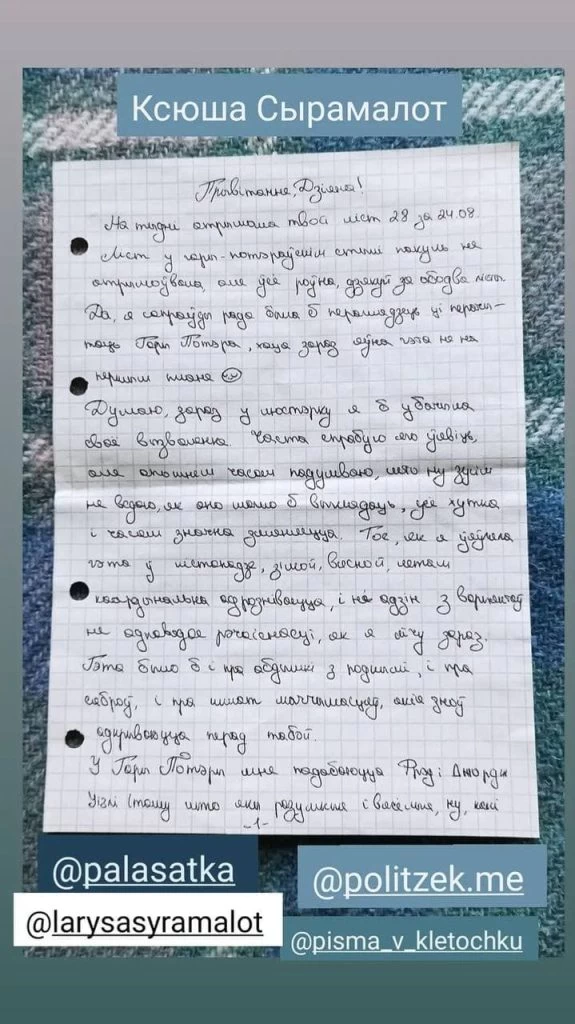 Ксюша Сырамалот
Прывітанне, Дзіяна!
На тыдні атрымала твой ліст 28 за 24.08.
Ліст у гары-потэраўскім стылі пакуль не
атрымоўвала, але ўсё роўна, дзякуй за абодва лісты.
Да, я сапраўды рада была б пераглядзець ці перачы-
таць Гары Потэра, хаця зараз яўна гэта не на
першым плане
Думаю, зараз у люстэрку я б убачыла
сваё вызваленне. Часта спрабую яго ўявіць,
але апошнім часам падумваю, што ну зусім
не ведаю, як яно магло б выглядаць, усё хутка
і часам значна змяняецца. Тое, як я ўяўляла
гэта ў лістападзе, зімой, вясной, летам
кардынальна адрозніваецца, і ні адзін з варыянтаў
не адпавядае рэчаіснасці, як я лічу зараз.
Гэта было б і пра абдымкі з роднымі, і пра
сяброў, і пра шмат магчымасцяў, якія зноў
адкрываюцца перад табой.
У Гары Потэры мне падабаюцца Фрэд і Джордж
Уізлі (таму што яны разумныя і вясёлыя, ну, калі
-1-
@palasatka
@politzek.me
@larysasyramalot
@pisma_v_kletochku